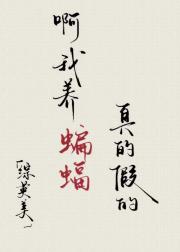 啊我养蝙蝠
真的假的
综英美